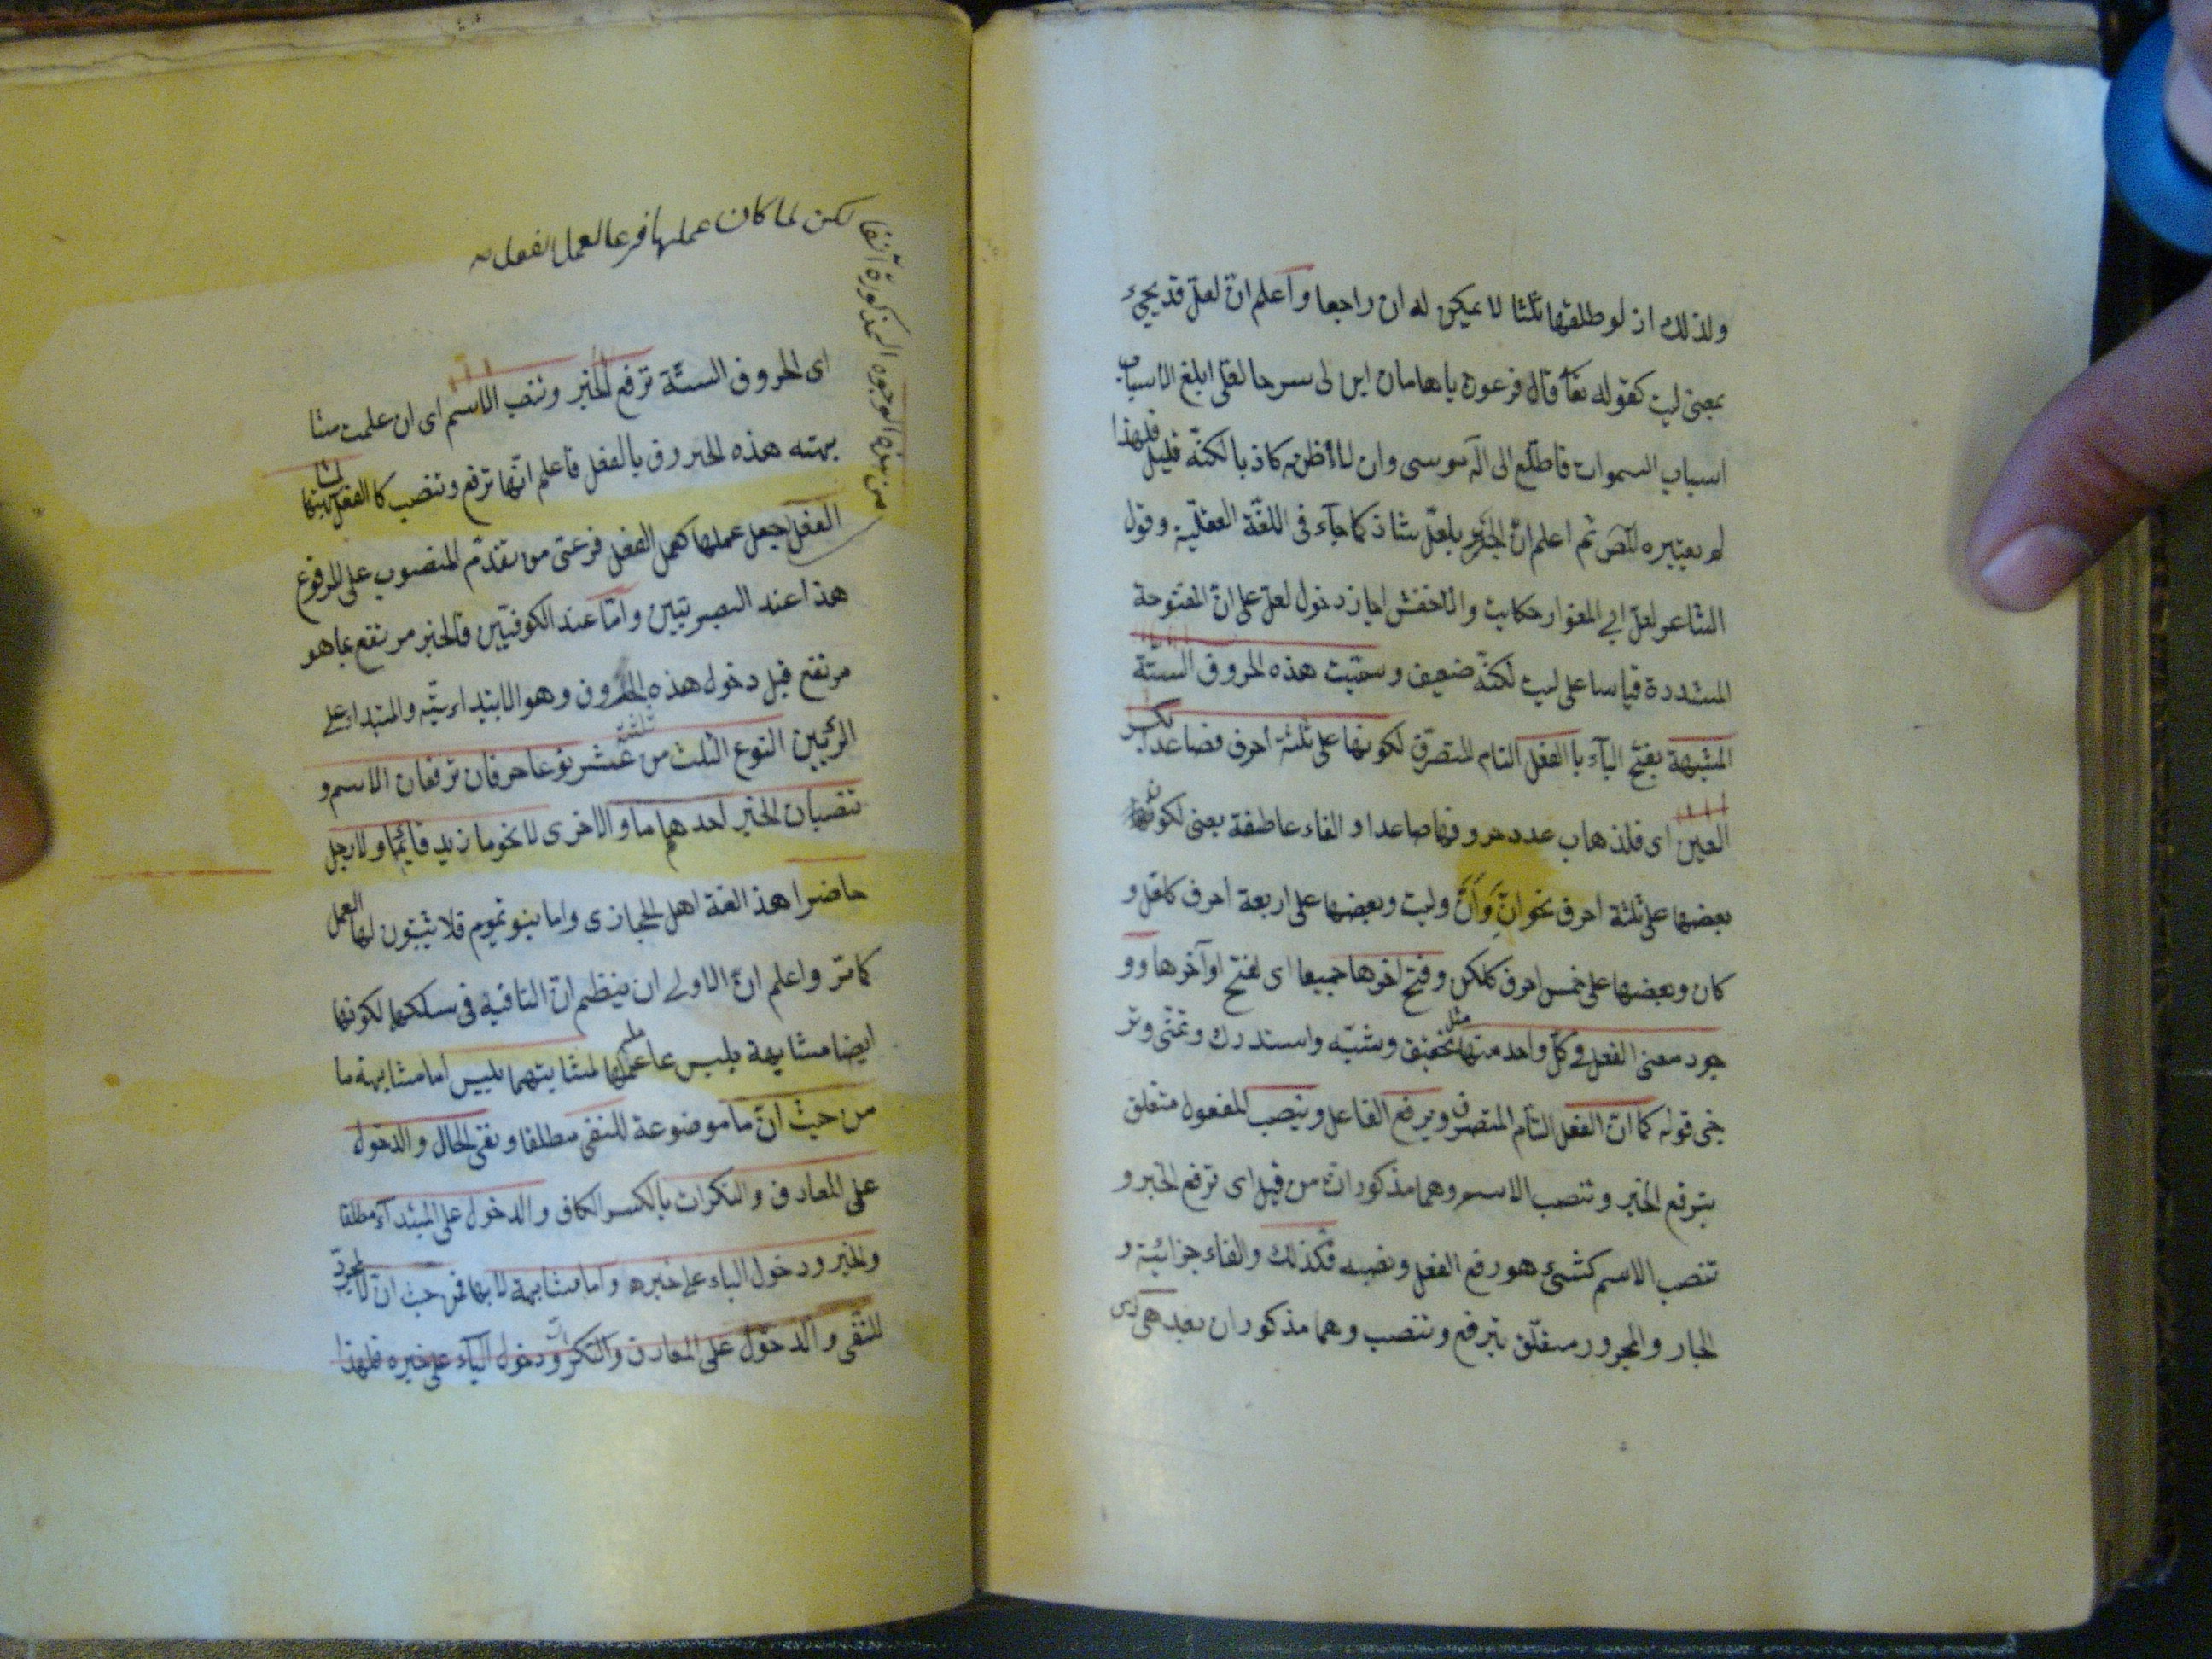 ولذلك اذ لو طلقها ثلثا لا يمكن له ان راجعا واعلم ان لعل قد يجئ
بمعنى ليت كقوله تعا قال فرعون يا هامان ابن لى سرحا لعلى ابلغ الاسباب
اسباب السموات فاطلع الى اله موسى وان لاظنه كاذبا لكنه قليل فلهذا
لم يعتبره المص ثم اعلم ان الجر بلعل شاذ كما جاء فى اللغة العقلية وقول
الشاعر لعل ابي المغوار حكايت والاخفش اجاز دخول لعل على ان المفتوحة
المشددة قياسا على ليت لكنه ضعيف وسميت هذه الحروف الستة
المشبهة بفتح الباء با الفعل التام المتصرف لكونها على ثلثة احرف فصاعدا بكسر
العين اى فلذهاب عدد حروفها صاعدا والفاء عاطفة يعنى لكون
بعضها على ثلثة احرف نحو ان وان وليت وبعضها على اربعة احرف كلعل و
كان وبعضها على خمس احرف كلكن وفتح اخرها جميعا اى لفتح اواخرها وو
جود معنى الفعل فى كل واحد منها مثل تحقيق وشبه واستدرك وتمنى وتر
جى قوله كما ان الفعل التام المتصرف ويرفع الفاعل وينصب المفعول متعلق
بترفع الخبر وتنصب الاسم وهما مذكوران من قبل اى ترفع الخبر و
تنصب الاسم كشئ هو رفع الفعل ونصبه فكذلك والفاء جزائية و
الجار والمجرور متعلق بترفع وتنصب وهما مذكوران بعد هى
لكن لما كان عملها فرعا لعمل الفعل
من هذه الوجوه المذكورة آنفا
اى الحروف الستة ترفع الخبر وتنصب الاسم اى ان علمت مشا
بهته هذه الحروف بالفعل فاعلم انها ترفع وتنصب كا الفعل
الفعل جعل عملها كعمل الفعل فرعى من تقدم المنصوب على المرفوع
هذا عند البصريين واما عند الكوفيين فالخبر مرتفع بما هو
مرتفع قبل دخول هذه الحروف وهو الابتدائية والمبتداء على
الرئيين النوع الثلث من ثلثة عشر نوعا حرفان ترفعان الاسم و
تنصبان الخبر احدهما ما والاخرى لا نحو ما زيد قائما ولا رجل
حاضرا هذا لغة اهل الحجازى واما بنو تميم فلا يثبتون لها العمل
كما مر واعلم ان الاولى ان ينظم ان النافية فى سلكها لكونها
ايضا مشابهة بليس عاملها لمشابهتهما بليس اما مشابهة ما
من حيث ان ما موضوعة للنفى مطلقا ونفى الحال والدخول
على المعارف والنكرات بالكسر الكاف والدخول على المبتداء مطلقا
والخبر ودخول الباء على خبره واما مشابهة لا بها فمن حيث ان لا لمجرد
للنفى والدخول على المعارف والنكرات ودخول الباء على خبره فلهذا